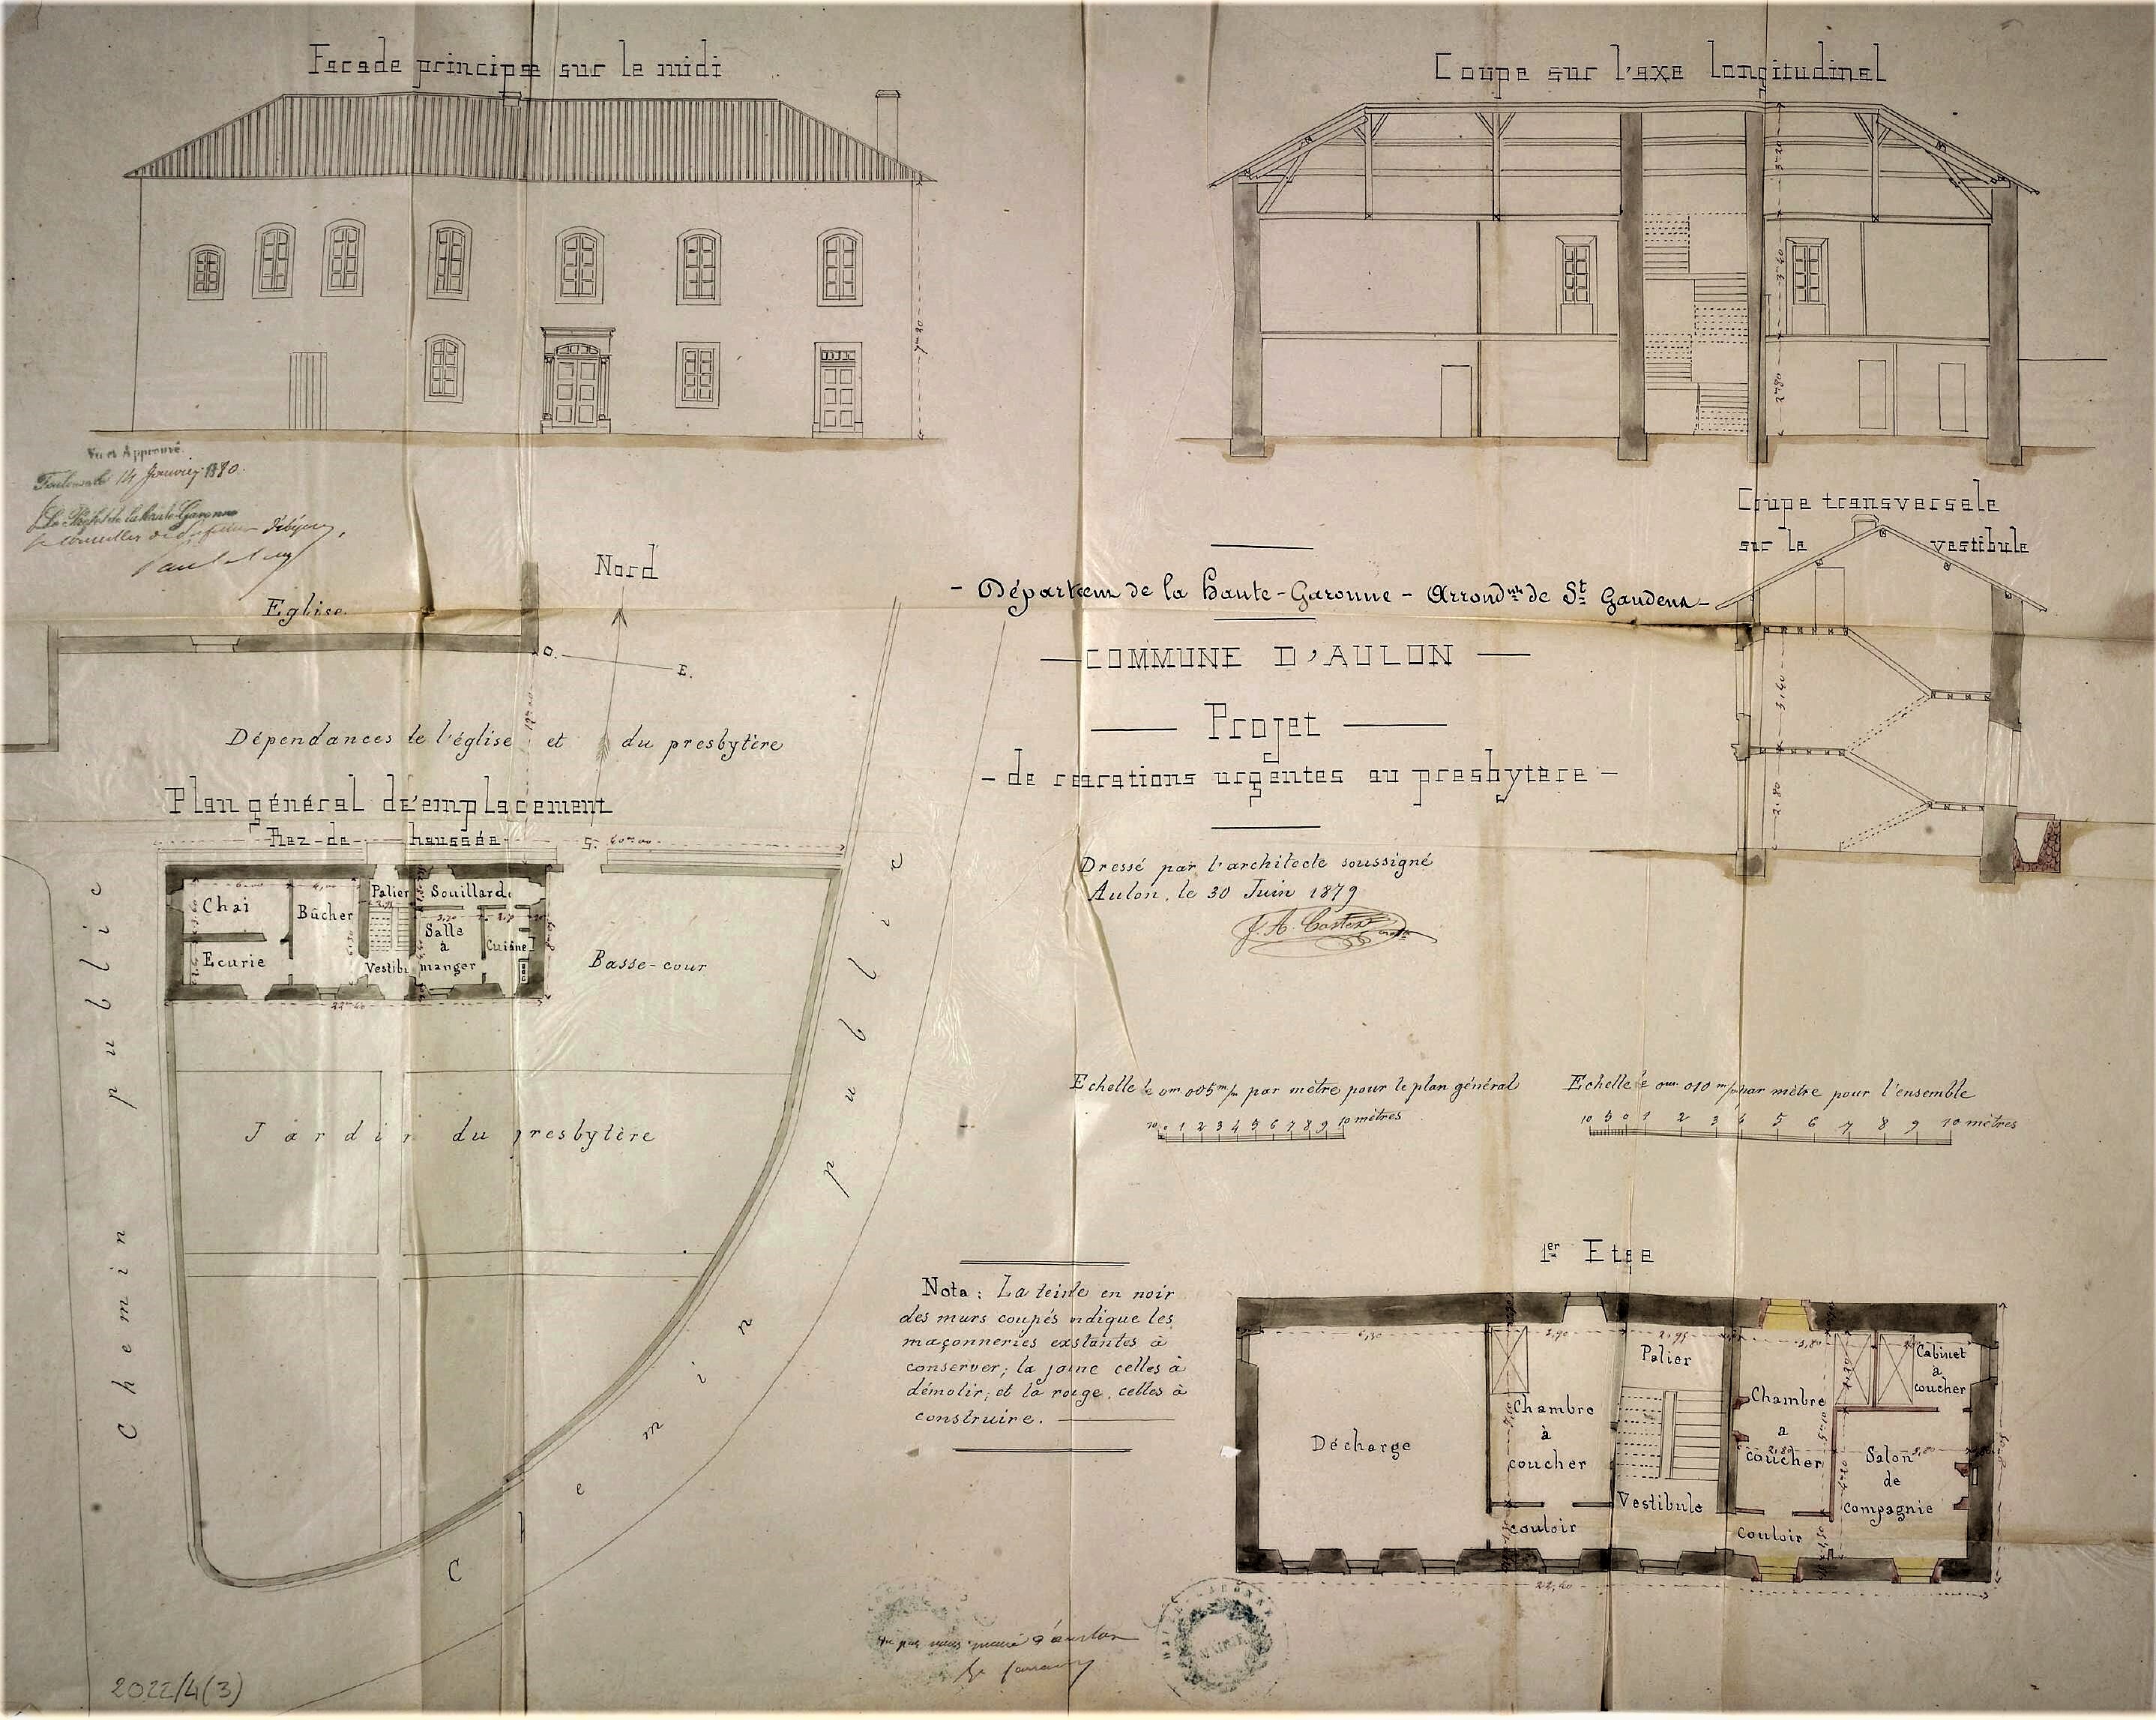 Facade principe sur le midi
Coupe sur l'axe longitudinal
9m20
3m20
3m40
2m80
Vu et Approuvé.
Toulouse le 14 Janvier 1880.
Le Préfet de la Haute-Garonne
Coupe transversale
sur le vestibule
3,40
2,80
Nord
O.
E.
S.
Eglise.
Dépendances de l'église et du presbytère
Plan général d'emplacement
Rez-de-haussée
Chai
Bûcher
Palier
Souillarde
Ecurie
Vestib
Salle
à
manger
Cuisine
22m40
Basse-cour
Jardin du presbytère
Chemin public
Chemin public
- Départem de la Haute-Garonne - Arrondnt de St Gaudens -
COMMUNE D'AULON
Projet
- de réarations urgentes au presbytère -
Dressé par l'architecte soussigné
Aulon, le 30 Juin 1879
J. A. Castex
Echelle de 0m.005m/m par mètre pour le plan général
10 0 1 2 3 4 5 6 7 8 9 10 mètres
Echelle de 0m.010 m/m par mètre pour l'ensemble
10 5 0 1 2 3 4 5 6 7 8 9 10 mètres
Nota : La teinte en noir
des murs coupés indique les
maçonneries existantes à
conserver; la jaune celles à
démolir; et la rouge, celles à
construire.
1er Etge
6,50
3,90
2,95
3,80
Décharge
Chambre
à
coucher
couloir
Palier
Vestibule
Chambre
a
coucher
couloir
Cabinet
à
coucher
Salon
de
compagnie
22,40
MAIRIE
2022/4(3)